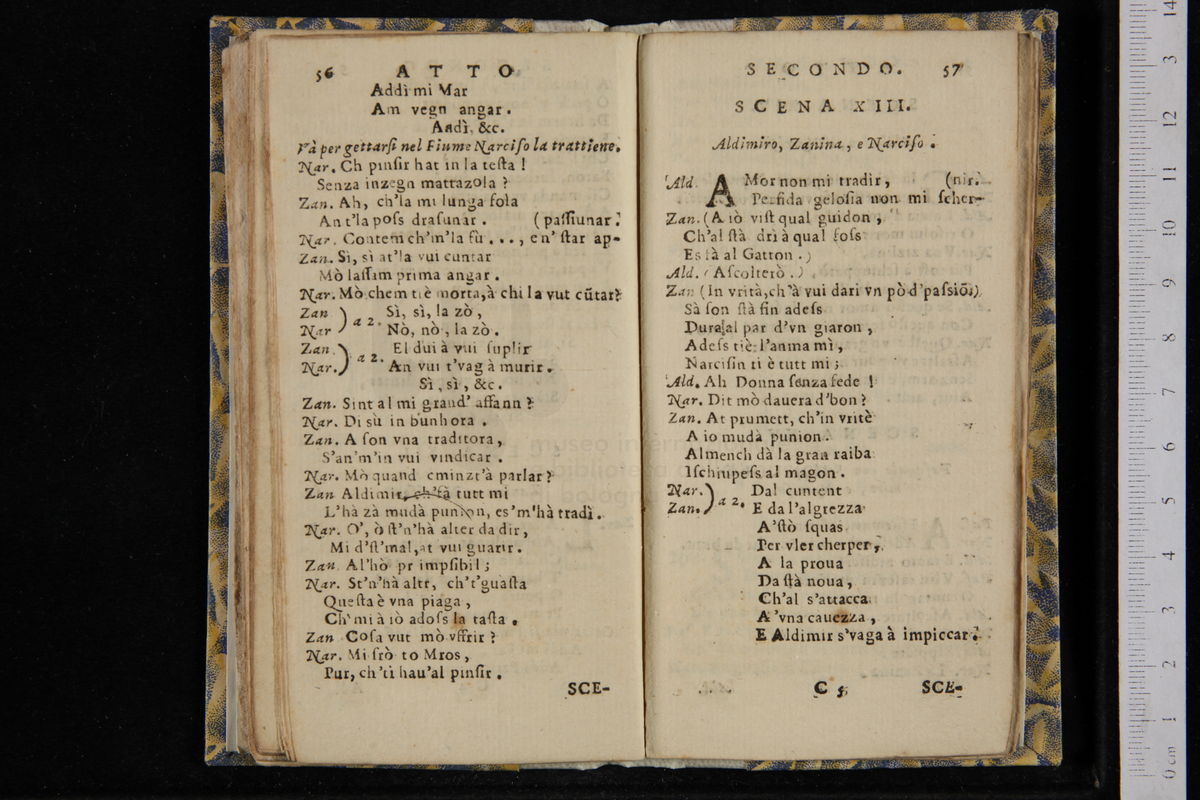 56 ATTO
Addì mi Mar
Am vegn angar.
Addì, &c.
Và per gettarſi nel Fiume Narciſo la trattiene.
Nar. Ch pinſir hat in la teſta!
Senza inzegn mattazola?
Zan. Ah, ch'la mi lunga ſola
An t'la poſs draſunar. (paſſiunar.
Nar. Contem ch'm'la fù..., e n'ſtar ap-
Zan. Sì, sì at'la vui cuntar
Mò laſſam prima angar.
Nar. Mò chem tiè morta, à chi la vut cũtar?
Zan. Sì, sì, la zò,
Nar. a 2. Nò, nò, la zò.
Zan. El dui à vui ſuplir
Nar. a 2. An vui t'vag à murir.
Sì, sì, &c.
Zan. Sint al mi grand' affann?
Nar. Di sù in bunhora.
Zan. A ſon vna traditora,
S'an'm'in vui vindicar.
Nar. Mò quand cminzt'à parlar?
Zan Aldimir, ch'fà tutt mi
L'hà zà mudà punion, es'm'hà tradì.
Nar. O', ò ſt'n'hà alter da dir,
Mi d'ſt'mal, at vui guarir.
Zan. Al'hò pr impſibil;
Nar. St'n'hà altr, ch't'guaſta
Queſta è vna piaga,
Ch'mi à iò adoſs la taſta.
Zan Coſa vut mò vffrir?
Nar. Mi frò to Mros,
Pur, ch'ti hau'al pinſir.
SCE-
SECONDO. 57
SCENA XIII.
Aldimiro, Zanina, e Narciſo.
Ald. AMor non mi tradir, (nir.
Perfida geloſia non mi ſcher-
Zan. (A iò viſt qual guidon,
Ch'al ſtà drì à qual foſs
Es ſà al Gatton.)
Ald. (Aſcolterò.)
Zan (In vrità, ch'à vui dari vn pò d'paſsiõ;)
Sà ſon ſtà fin adeſs
Dura al par d'vn giaron,
Adeſs tiè l'anma mì,
Narciſin ti è tutt mi;
Ald. Ah Donna ſenza fede!
Nar. Dit mò dauera d'bon?
Zan. At prumett, ch'in vritè
A io mudà punion.
Almench dà la gran raiba
Iſchiupeſs al magon.
Nar. Dal cuntent
Zan. a 2. E da l'algrezza
A'ſtò ſquas
Per vler cherper,
A la proua
Da ſtà noua,
Ch'al s'attacca
A'vna cauezza,
E Aldimir s'vaga à impiccar.
C 5 SCE-